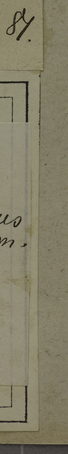 87.
us
m.